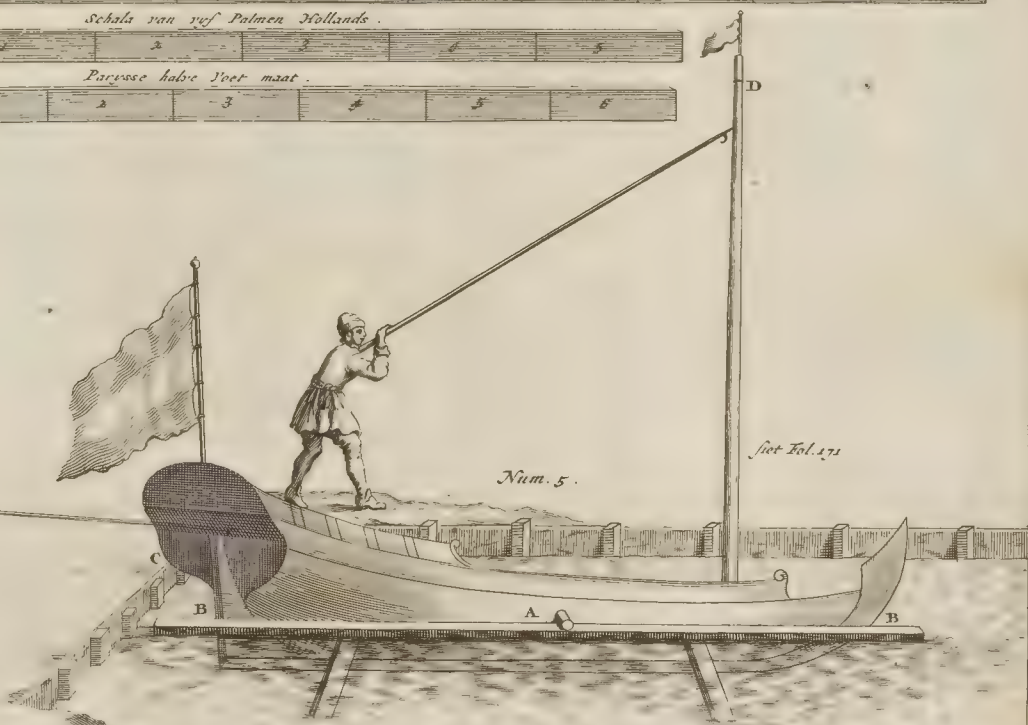 Schala van vyf Palmen Hollands.
1 2 3 4 5
Parysse halve Voet maat.
2 3 4 5 6
D
siet Fol. 171
Num. 5.
C
B A B